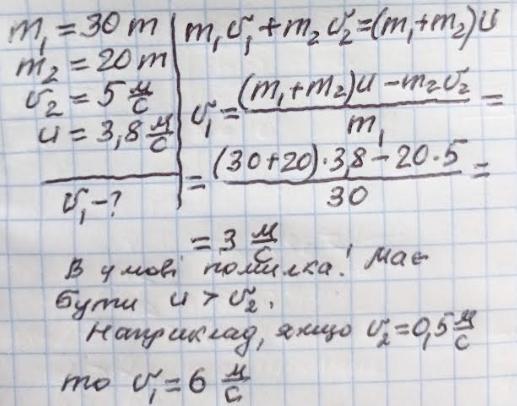 m₁ = 30 т
m₂ = 20 т
v₂ = 5 м/с
u = 3,8 м/с
v₁ - ?
m₁v₁ + m₂v₂ = (m₁+m₂)u
v₁ = ((m₁+m₂)u - m₂v₂)/m₁ =
= ((30+20)·3,8 - 20·5)/30 =
= 3 м/с
В умові помилка! Має
бути u > v₂.
Наприклад, якщо v₂=0,5 м/с
то v₁ = 6 м/с